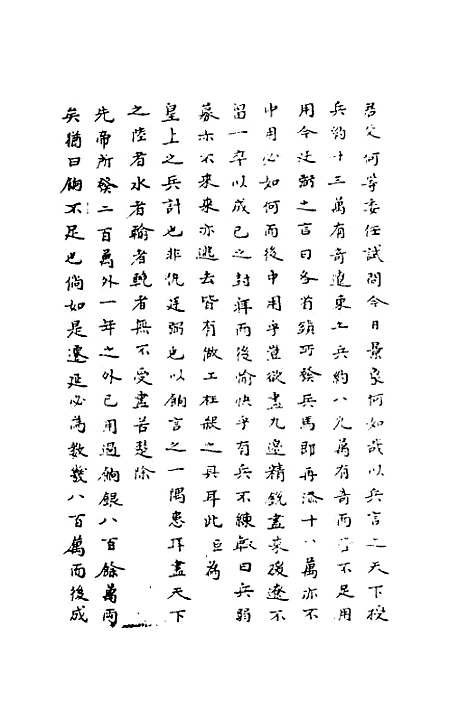 君父何等委任試問今日景象何如哉以兵言之天下授
兵約十三萬有奇遼東土兵約八九萬有奇而不足用
用今廷弼之言曰各省鎮所發兵馬即再添十八萬亦不
中用必如何而後中用乎豈欲盡九邊精銳盡來援遼不
留一卒以成已之封拜而後愉快乎有兵不練輒曰兵弱
募亦不來來亦逃去皆有做工枉殺之具耳此臣為
皇上之兵計也非仇廷弼也以餉言之一隅患耳盡天下
之陸者水者輸者輓者無不受盡苦楚除
先帝所發二百萬外一年之外已用過餉銀八百餘萬兩
矣猶曰餉不足也倘如是遷延必為數幾八百萬而後成